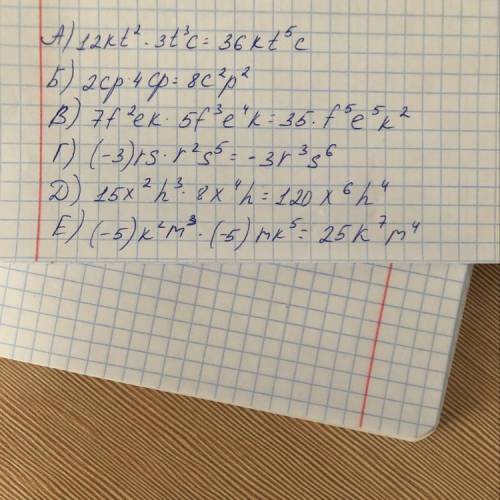 А) 12kt² · 3t³c = 36kt⁵c
Б) 2cp · 4cp = 8c²p²
В) 7f²ek · 5f³e⁴k = 35 · f⁵e⁵k²
Г) (-3)rs · r²s⁵ = -3r³s⁶
Д) 15x²h³ · 8x⁴h = 120x⁶h⁴
Е) (-5)k²m³ · (-5)mk⁵ = 25k⁷m⁴